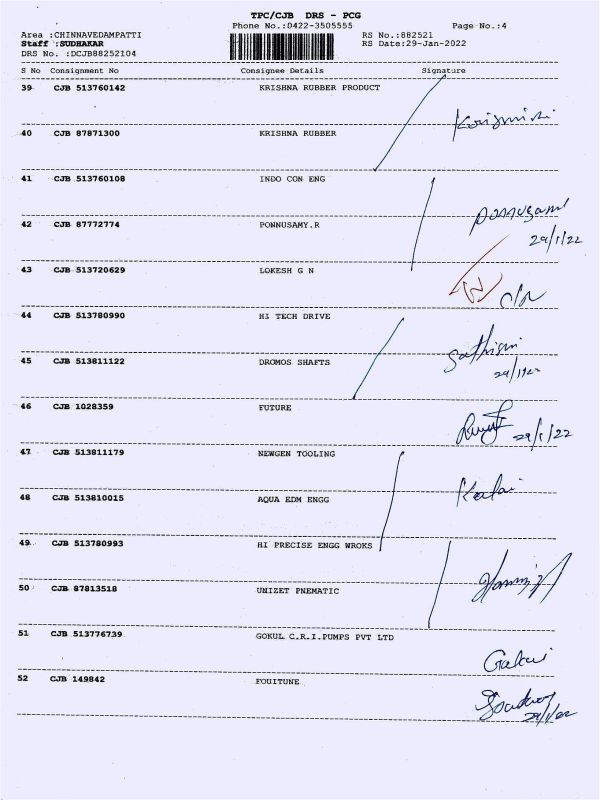 TPC/CJB DRS - PCG
Phone No.:0422-3505555 Page No.:4
Area :CHINNAVEDAMPATTI RS No.:882521
Staff :SUDHAKAR RS Date:29-Jan-2022
DRS No. :DCJB88252104
S No Consignment No Consignee Details Signature
39 CJB 513760142 KRISHNA RUBBER PRODUCT
40 CJB 87871300 KRISHNA RUBBER
41 CJB 513760108 INDO CON ENG
42 CJB 87772774 PONNUSAMY.R
29/1/22
43 CJB 513720629 LOKESH G N
44 CJB 513780990 HI TECH DRIVE
45 CJB 513811122 DROMOS SHAFTS
46 CJB 1028359 FUTURE
29/1/22
47 CJB 513811179 NEWGEN TOOLING
48 CJB 513810015 AQUA EDM ENGG
Kalai
49 CJB 513780993 HI PRECISE ENGG WROKS
50 CJB 87813518 UNIZET PNEMATIC
51 CJB 513776739 GOKUL C.R.I.PUMPS PVT LTD
52 CJB 149842 FOUITUNE
29/1/22